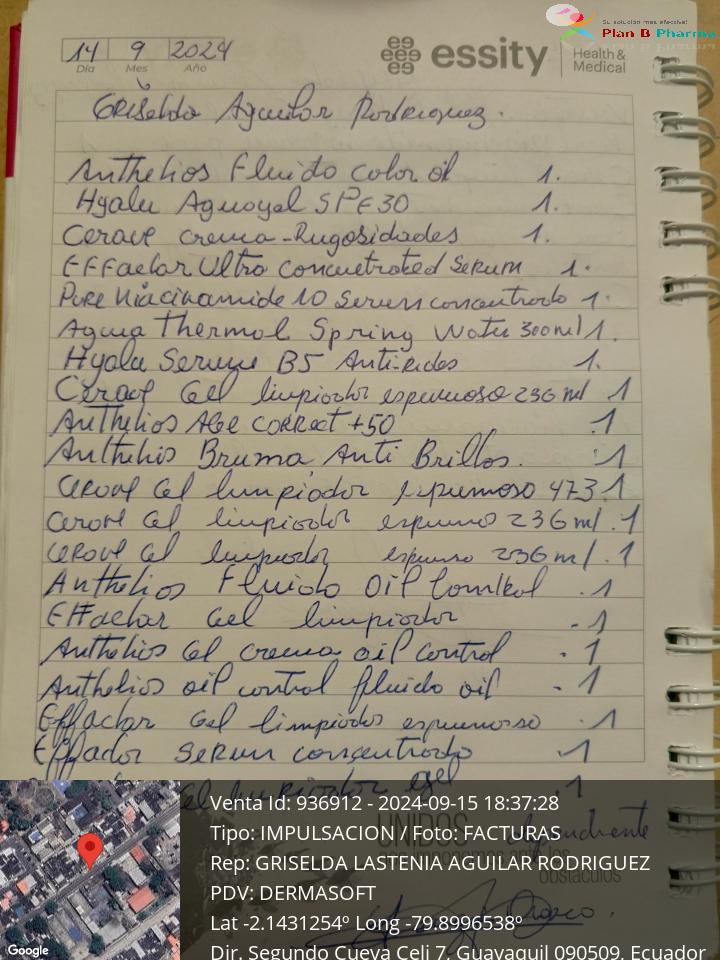 Su solución mas efectiva!
Plan B Pharma
14 9 2024
Día Mes Año
essity
Health &
Medical
Griselda Aguilar Rodriguez.
Anthelios Fluido color oil 1.
Hyalu Aguagel SPF30 1.
Cerave crema-Rugosidades 1.
EFFaclar Ultra Concuetrated Serum 1.
Pure Niacinamide 10 Serum concentrado 1.
Agua Thermal Spring Water 300ml 1.
Hyalu Serum B5 Anti-rides 1.
Cerave Gel limpiador espumoso 236 ml 1
Anthelios AGe CORRect +50 .1
Anthelios Bruma Anti Brillos. 1
Cerave Gel limpiador espumoso 473.1
Cerave Gel limpiador espumo 236 ml .1
Cerave Gel limpiador espumo 236 ml .1
Anthelios Fluido Oil Control .1
EFFaclar Gel limpiador .1
Anthelios Gel crema oil control .1
Anthelios oil control fluido oil .1
Effaclar Gel limpiador espumosso .1
Effaclar Serum concentrado .1
Gel limpiador .1
UNIDOS
obstáculos
Orozco.
Venta Id: 936912 - 2024-09-15 18:37:28
Tipo: IMPULSACION / Foto: FACTURAS
Rep: GRISELDA LASTENIA AGUILAR RODRIGUEZ
PDV: DERMASOFT
Lat -2.1431254º Long -79.8996538º
Dir. Segundo Cueva Celi 7, Guayaquil 090509, Ecuador
Google